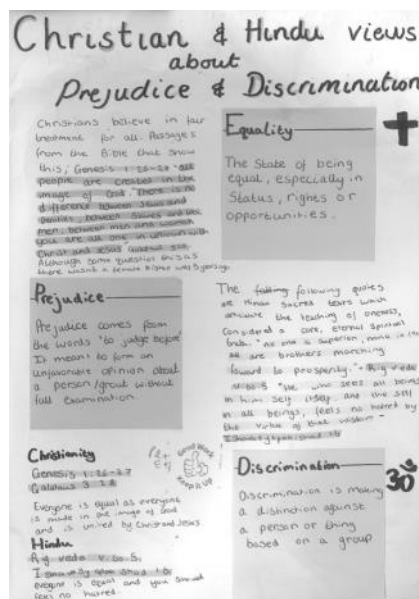 Christian & Hindu views
about
Prejudice & Discrimination
Christians believe in fair
treatment for all. Passages
from the Bible that show
this, Genesis 1:26-27 "all
people are created in the
image of God. "There is no
difference between Jews and
Gentiles, between Slaves and free
men, between men and women
you are all one in union with
Christ and Jesus"
Although some question this as
there wasn't a female Bishop until 5 years ago.
Equality
The State of being
equal, especially in
Status, rights or
opportunities.
Prejudice
Prejudice comes from
the words 'to judge before'
It meant to form an
unfavorable opinion about
a person/group without
full examination.
The following quotes
are Hindu Sacred texts which
the teaching of oneness,
Considered a core, eternal spiritual
truth. "no one is superior, none
all are brothers marching
forward to prosperity." - Rig veda
"He who sees all beings
in him self itself, and the self
in all beings, feels no hatred by
the virtue of that wisdom"
Christianity
Genesis 1:26-27
Galatians 3:28
Everyone is equal as everyone
is made in the image of God
and is united by Christ and Jesus
Good Work
Keep it up
Hindu
Rig veda v.60.5.
everyone is equal and you should
feel no hatred.
Discrimination
Discrimination is making
a distinction against
a person or thing
based on a group